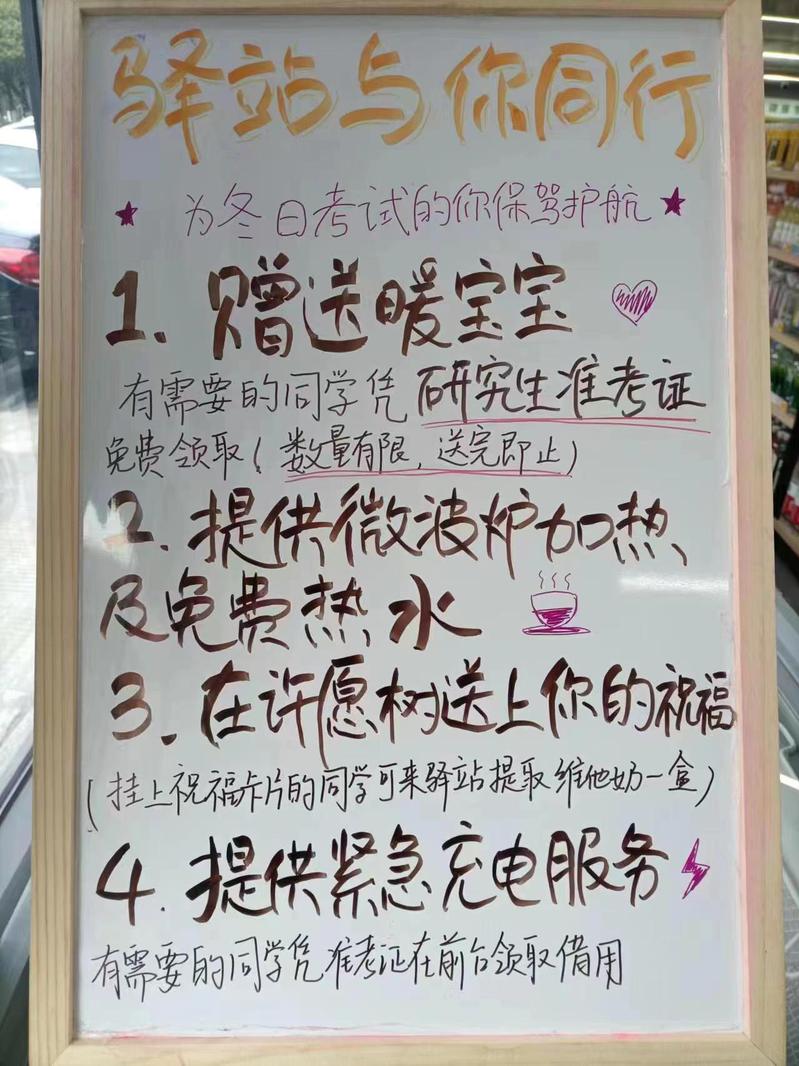 驿站与你同行
为冬日考试的你保驾护航
1. 赠送暖宝宝
有需要的同学凭研究生准考证
免费领取(数量有限,送完即止)
2. 提供微波炉加热
及免费热水
3. 在许愿树送上你的祝福
(挂上祝福卡片的同学可来驿站提取维他奶一盒)
4. 提供紧急充电服务
有需要的同学凭准考证在前台领取借用